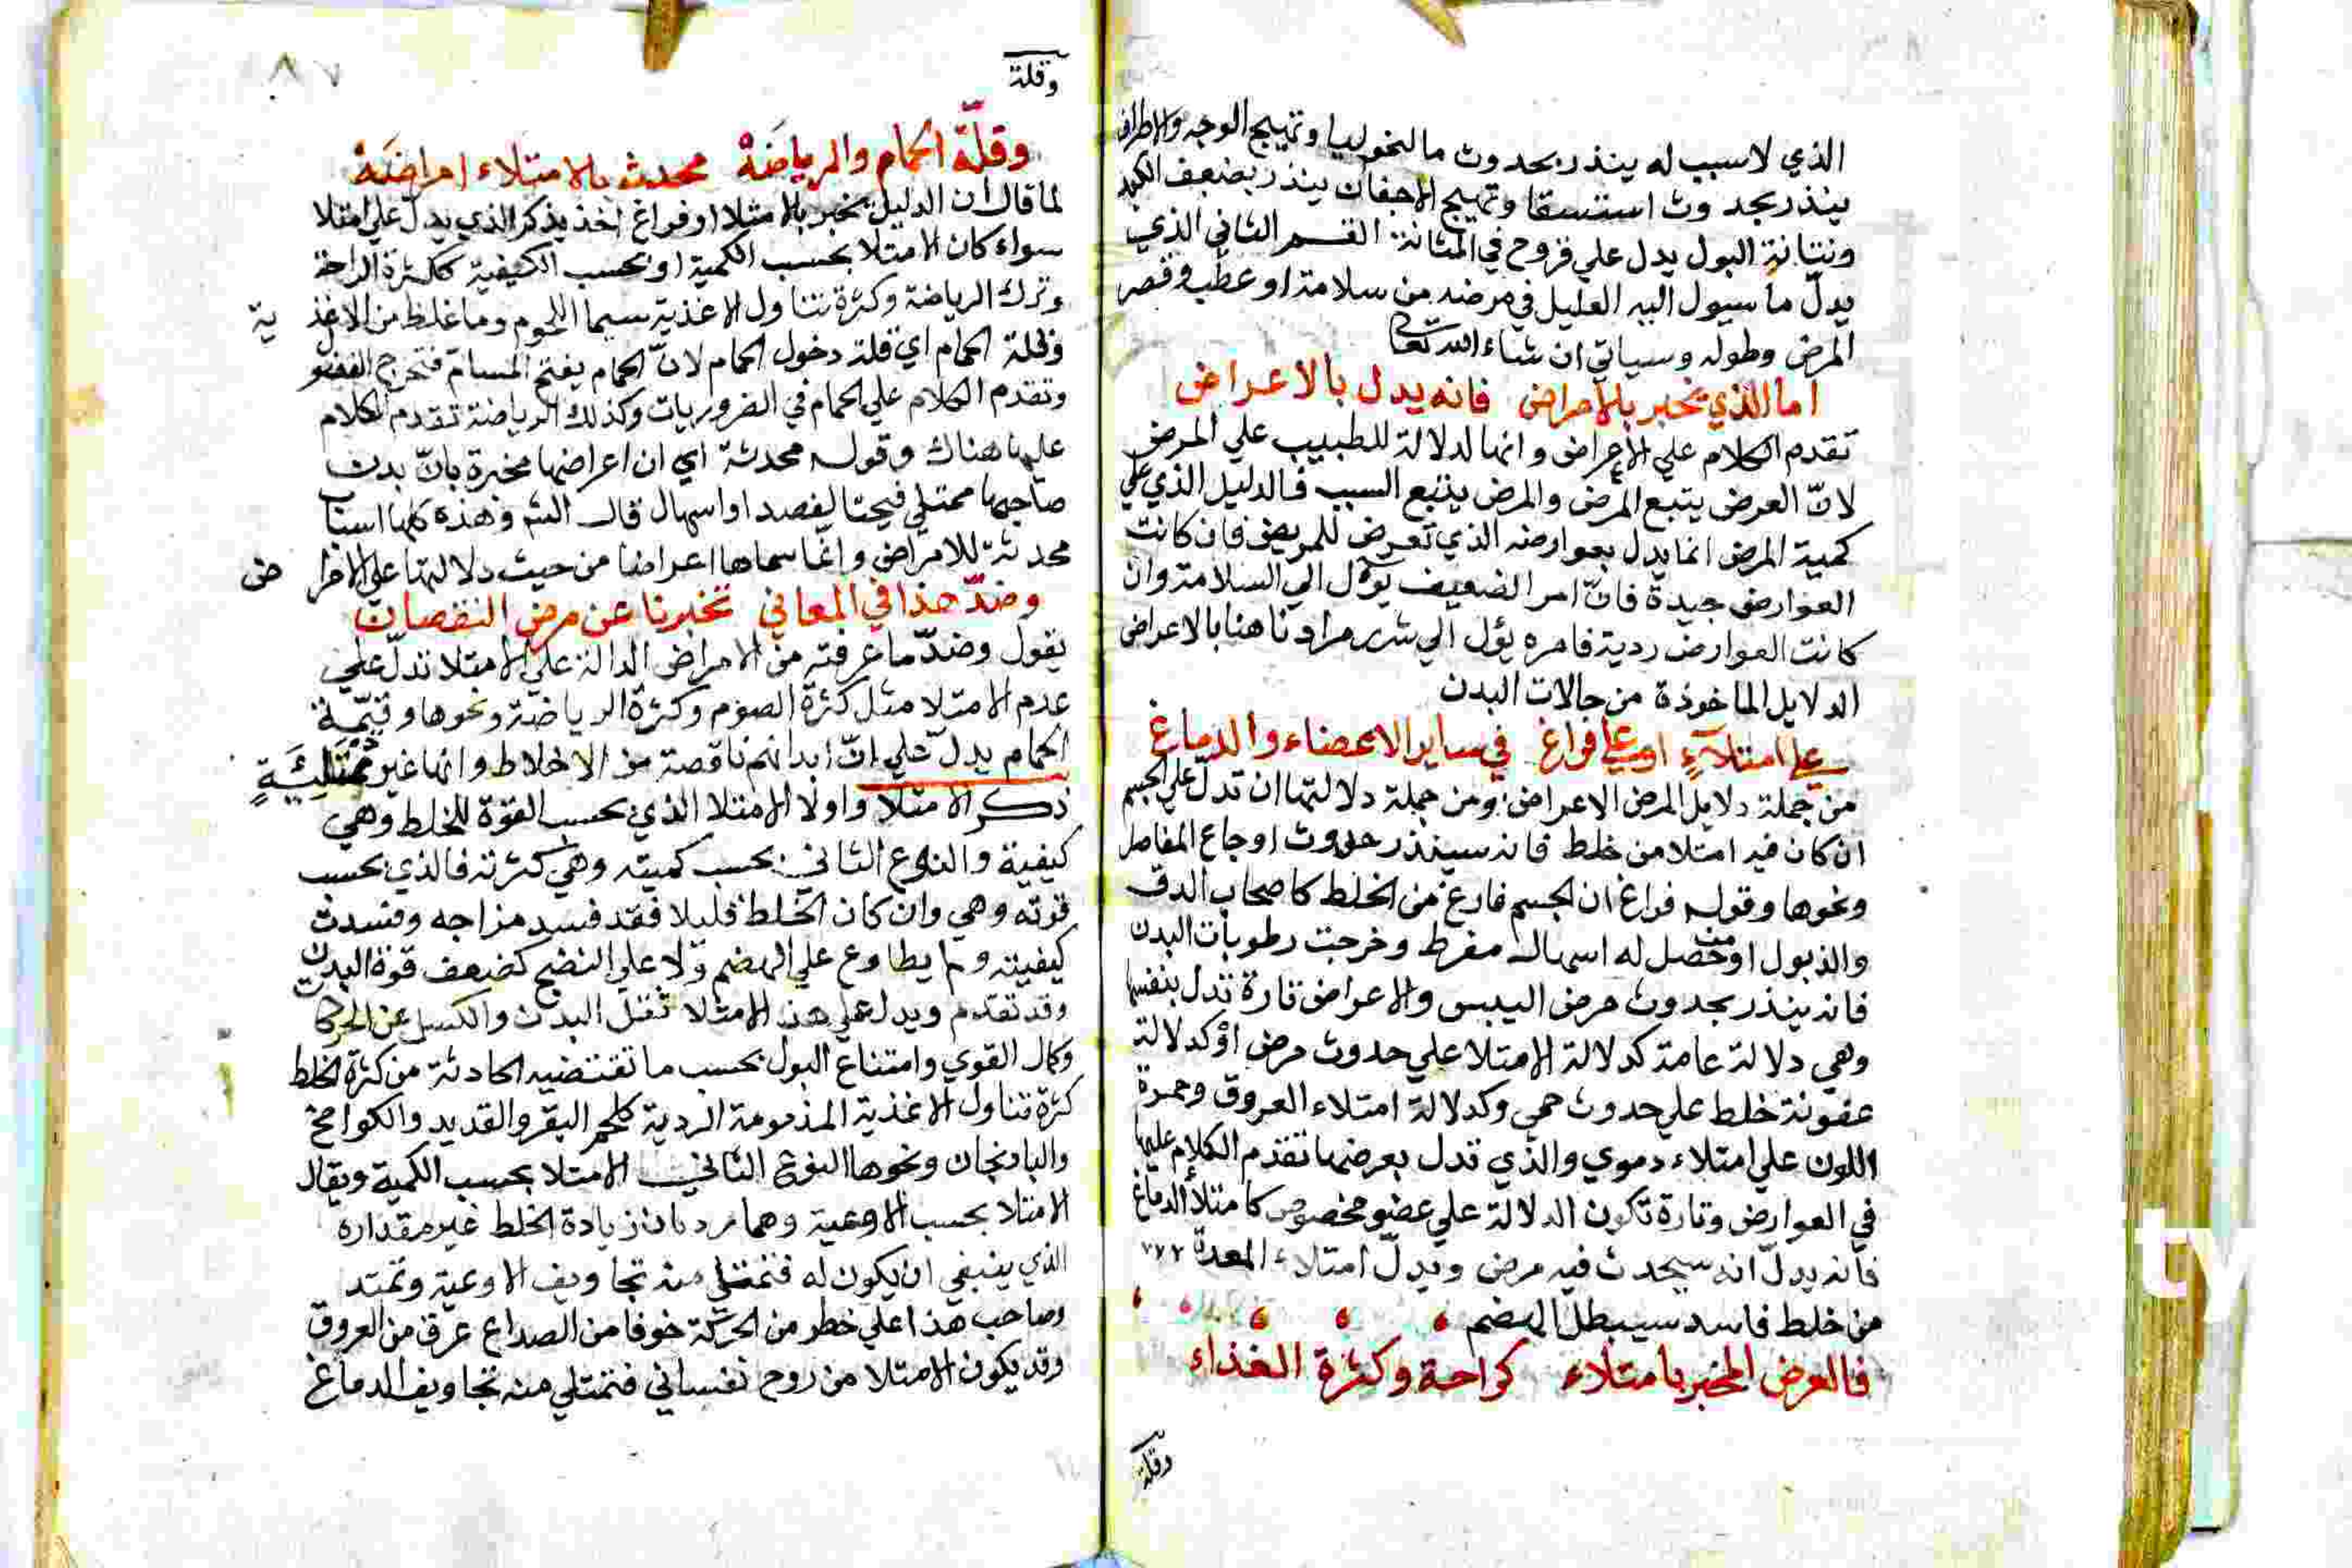 الذي لا سبب له ينذر بحدوث مالنخوليا وتهيج الوجه والاطراف
ينذر بحدوث استسقا وتهيج الاجفان ينذر بضعف الكبد
ونتانة البول يدل علي قروح في المثانة القسم الثاني الذي
يدلّ ما سيول اليه العليل في مرضه من سلامة او عطب وقصر
المرض وطوله وسياتي ان شاء الله تعا
اما الذي يخبر بالامراض فانه يدل بالاعراض
تقدم الكلام علي الاعراض وانها لدلالة للطبيب علي المرض
لانّ العرض يتبع المرض والمرض يتبع السبب فالدليل الذي علي
كمية المرض انما يدل بعوارضه الذي تعرض للمريض فان كانت
العوارض جيدة فانّ امر الضعيف يؤل الي السلامة وان
كانت العوارض ردية فامره يؤل الي شر مرادنا هنا بالاعراض
الدلايل الماخوذة من حالات البدن
علي امتلآءٍ او علي فراغ في ساير الاعضاء والدماغ
من جملة دلايل المرض الاعراض ومن جملة دلالتها ان تدل علي الجسم
ان كان فيه امتلا من خلط فانه سينذر حدوث اوجاع المفاصل
ونحوها وقوله فراغ ان الجسم فارغ من الخلط كاصحاب الدق
والذبول او من حصل له اسهال مفرط وخرجت رطوبات البدن
فانه ينذر بحدوث مرض اليبس والاعراض تارة تدل بنفسها
وهي دلالة عامة كدلالة الامتلا علي حدوث مرض اوكدلالة
عفونة خلط علي حدوث حمي وكدلالة امتلاء العروق وحمرة
اللون علي امتلاء دموي والذي تدل بعرضها تقدم الكلام عليها
في العوارض وتارة تكون الدلالة علي عضو مخصوص كامتلأ الدماغ
فانه يدلّ انه سيحدث فيه مرض ويدلّ امتلاء المعدة
من خلط فاسد سيبطل الهضم
فالعرض المخبر بامتلاء كراحة وكثرة الغذاء
وقلة
وقلة
وقلّة الحمام والرياضة محدث بالامتلاء امراضة
لما قال ان الدليل يخبر بالامتلا او فراغ اخذ يذكر الذي يدلّ علي امتلا
سواء كان الامتلا بحسب الكمية او بحسب الكيفية ككثرة الراحة
وترك الرياضة وكثرة تناول الاغذية سيما اللحوم وما غلظ من الاغذية
وقلة الحمام اي قلة دخول الحمام لانّ الحمام يفتح المسامّ فتخرج الفضول
وتقدم الكلام علي الحمام في الضروريات وكذلك الرياضة تقدم الكلام
عليها هناك وقوله محدثة اي ان اعراضها مخبرة بانّ بدن
صاحبها ممتلي فيحتا لفصد او اسهال قال الش وهذه كلها اسباب
محدثة للامراض وانّما سماها اعراضا من حيث دلالتها علي الامراض
وضدّ هذا في المعاني تخبرنا عن مرض النقصان
يقول وضدّ ما عرفته من الامراض الدالة علي الامتلا تدلّ علي
عدم الامتلا مثل كثرة الصوم وكثرة الرياضة ونحوها وقيّمة
الحمام يدل علي انّ ابدانهم ناقصة من الاخلاط وانها غير مُمْتَلِئَةٍ
ذكر الامتلا واولا الامتلا الذي بحسب القوة للخلط وهي
كيفية والنوع الثاني بحسب كميته وهي كثرته فالذي بحسب
قوته وهي وان كان الخلط قليلا فقد فسد مزاجه وفسدت
كيفيته ولم يطاوع علي الهضم ولا علي النضج كضعف قوة البدن
وقد تقدم ويدل علي هذا الامتلا ثقل البدن والكسل عن الحركا
وكال القوي وامتناع البول بحسب ما تقتضيه الحادثة من كثرة الخلط
كثرة تناول الاغذية المذمومة الردية كلحم البقر والقديد والكوامخ
والباذنجان ونحوها النوع الثاني الامتلا بحسب الكمية ويقال
الامتلا بحسب الاوعية وهما رديان زيادة الخلط غير مقداره
الذي ينبغي ان يكون له فتمتلي منه تجاويف الاوعية وتمتد
وصاحب هذا علي خطر من الحركة خوفا من انصداع عرق من العروق
وقد يكون الامتلا من روح نفساني فتمتلي منه تجاويف الدماغ